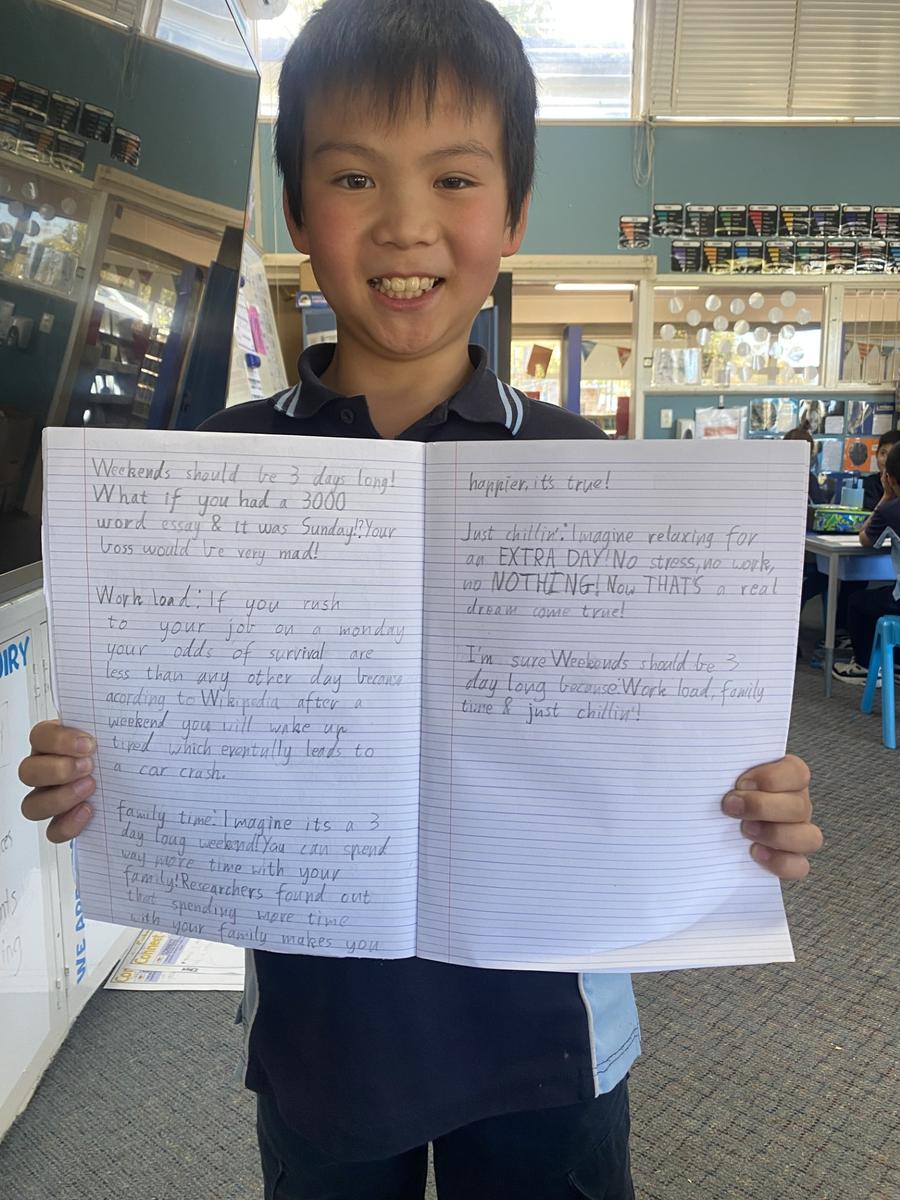 Weekends should be 3 days long!
What if you had a 3000
word essay & it was Sunday!?Your
boss would be very mad!
Work load: If you rush
to your job on a monday
your odds of survival are
less than any other day because
acording to Wikipedia after a
weekend you will wake up
tired which eventully leads to
a car crash.
family time: Imagine its a 3
day long weekend!You can spend
way more time with your
family!Researchers found out
that spending more time
with your family makes you
happier, it's true!
Just chillin': Imagine relaxing for
an EXTRA DAY! No stress, no work,
no NOTHING! Now THAT'S a real
dream come true!
I'm sure Weekends should be 3
day long because: Work load, family
time & just chillin'!
WE ARE